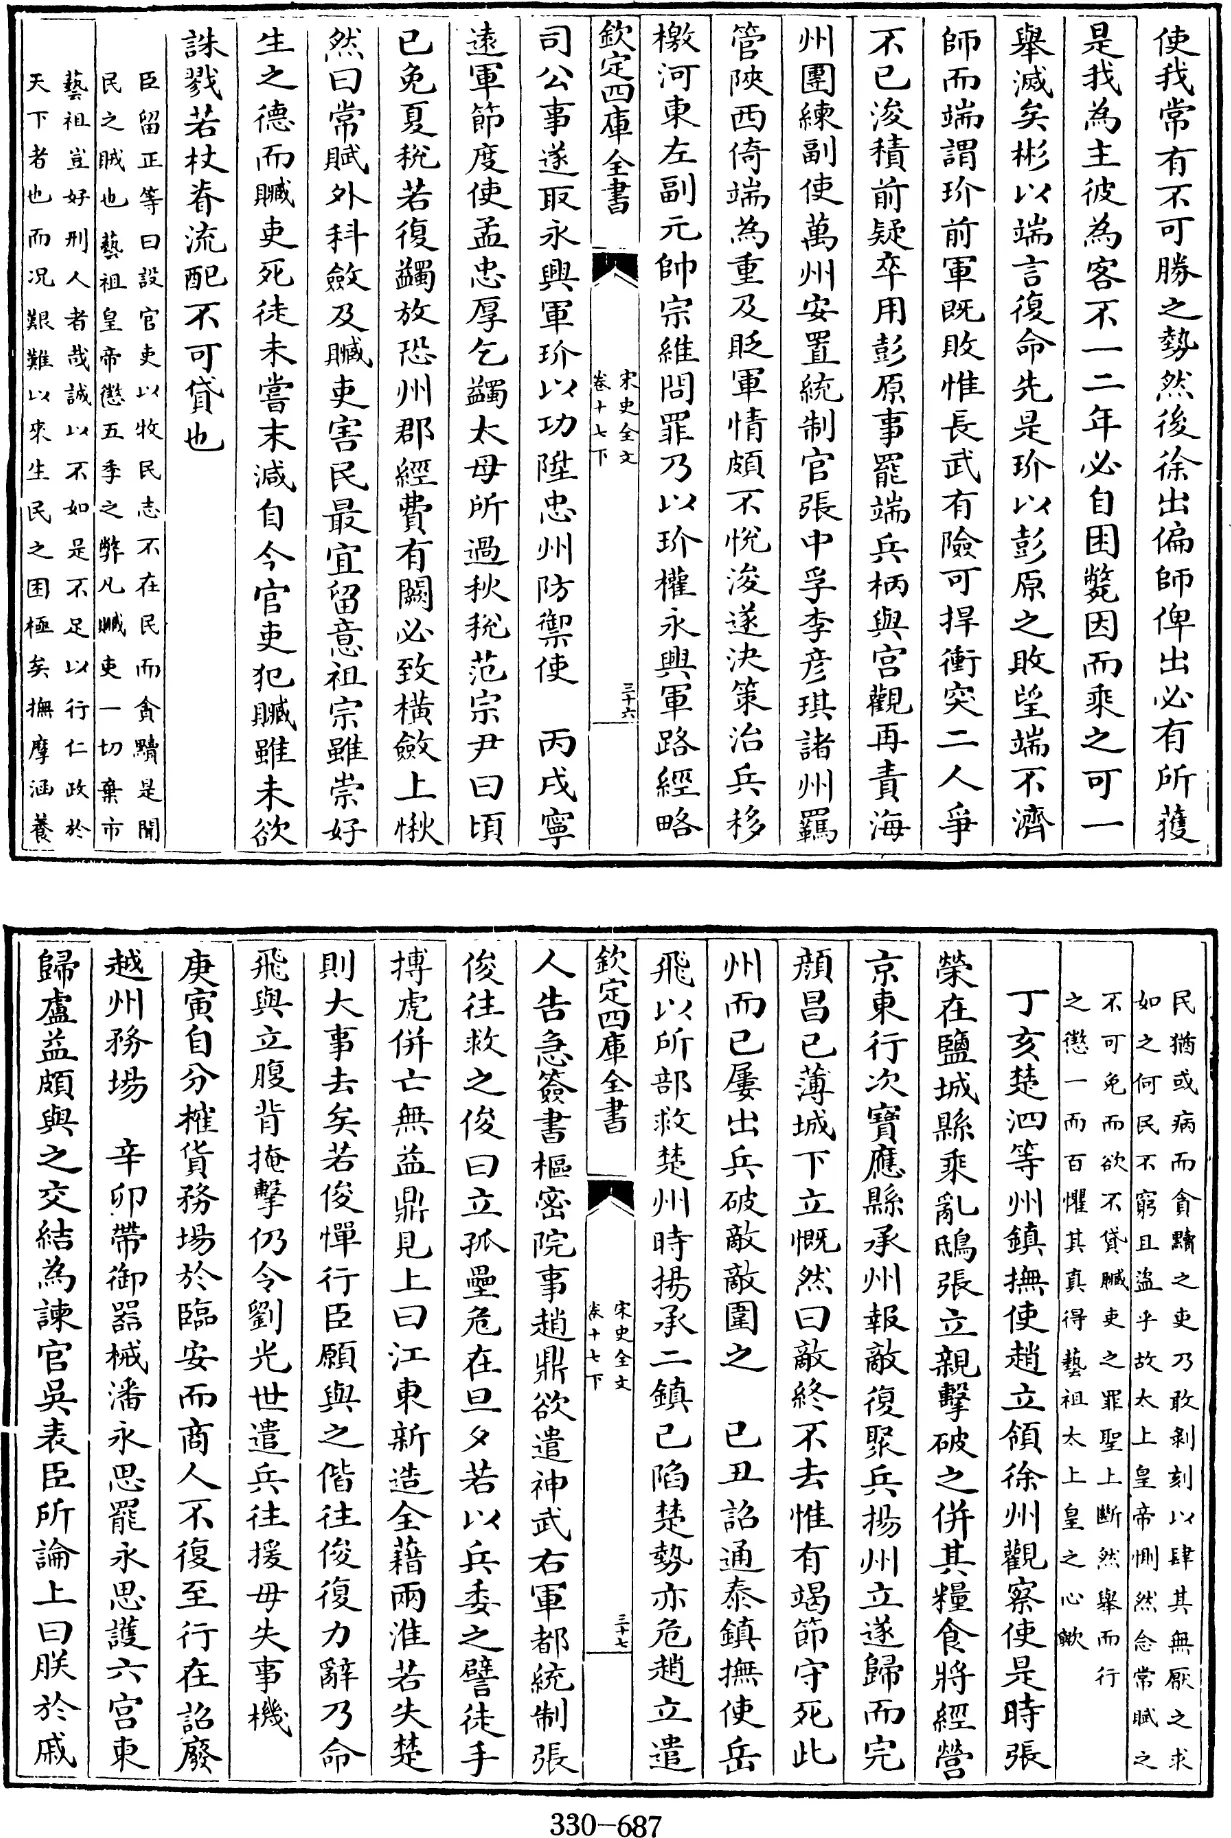 使我常有不可勝之勢然後徐出偏師俾出必有所獲
是我為主彼為客不一二年必自困斃因而乘之可一
舉滅矣彬以端言復命先是玠以彭原之敗望端不濟
師而端謂玠前軍既敗惟長武有險可捍衝突二人爭
不已浚積前疑卒用彭原事罷端兵柄與宮觀再責海
州團練副使萬州安置統制官張中孚李彦琪諸州羈
管陜西倚端為重及貶軍情頗不悅浚遂決策治兵移
檄河東左副元帥宗維問罪乃以玠權永興軍路經略
欽定四庫全書
宋史全文
卷十七下
三十六
司公事遂取永興軍玠以功陞忠州防禦使　丙戌寧
遠軍節度使孟忠厚乞蠲太母所過秋稅范宗尹曰頃
已免夏稅若復蠲放恐州郡經費有闕必致橫斂上愀
然曰常賦外科斂及贓吏害民最宜留意祖宗雖崇好
生之德而贓吏死徒未嘗末減自今官吏犯贓雖未欲
誅戮若杖脊流配不可貸也
臣留正等曰設官吏以牧民志不在民而貪黷是聞
民之賊也藝祖皇帝懲五季之弊凡贓吏一切棄市
藝祖豈好刑人者哉誠以不如是不足以行仁政於
天下者也而况艱難以來生民之困極矣撫摩涵養
民猶或病而貪黷之吏乃敢剝刻以肆其無厭之求
如之何民不窮且盜乎故太上皇帝惻然念常賦之
不可免而欲不貸贓吏之罪聖上斷然舉而行
之懲一而百懼其真得藝祖太上皇之心歟
丁亥楚泗等州鎮撫使趙立領徐州觀察使是時張
榮在鹽城縣乘亂鴟張立親擊破之併其糧食將經營
京東行次寶應縣承州報敵復聚兵揚州立遂歸而完
顔昌已薄城下立慨然曰敵終不去惟有竭節守死此
州而已屢出兵破敵敵圍之　己丑詔通泰鎮撫使岳
飛以所部救楚州時揚承二鎮已陷楚勢亦危趙立遣
欽定四庫全書
宋史全文
卷十七下
三十七
人告急簽書樞密院事趙鼎欲遣神武右軍都統制張
俊往救之俊曰立孤壘危在旦夕若以兵委之譬徒手
搏虎併亡無益鼎見上曰江東新造全藉兩淮若失楚
則大事去矣若俊憚行臣願與之偕往俊復力辭乃命
飛與立腹背掩擊仍令劉光世遣兵往援毋失事機
庚寅自分榷貨務場於臨安而商人不復至行在詔廢
越州務場　辛卯帶御器械潘永思罷永思護六宮東
歸盧益頗與之交結為諫官吳表臣所論上曰朕於戚
330-687